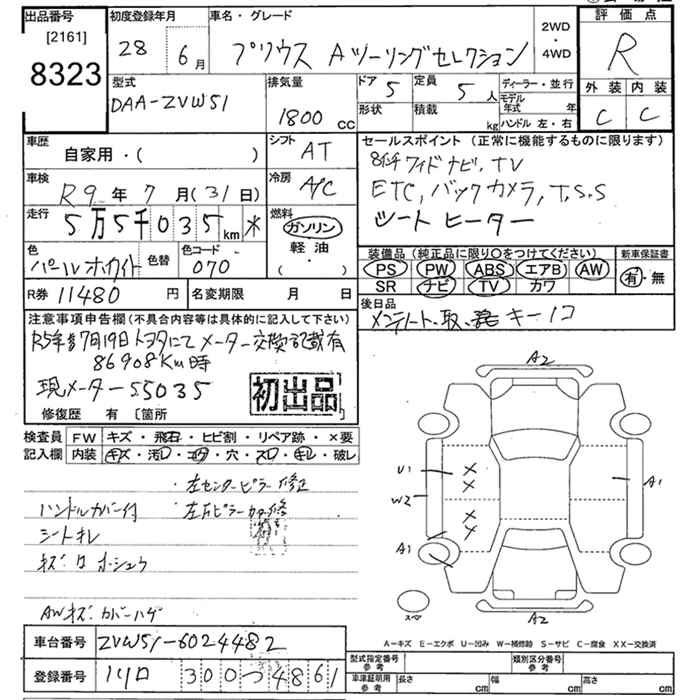 出品番号
[2161]
8323
初度登録年月
28 6月
車名・グレード
プリウス Aツーリングセレクション
2WD
・
4WD
評価点
R
外装 内装
C C
型式
DAA-ZVW51
排気量
1800 CC
ドア 5
定員 5人
形状
積載 kg
ディーラー・並行
モデル年式 年
ハンドル 左・右
車歴
自家用・( )
シフト AT
セールスポイント(正常に機能するものに限ります)
8インチワイドナビ, TV
ETC, バックカメラ, T.S.S
シートヒーター
車検
R9年7月(31日)
冷房 A/C
走行
5万5千035km *
燃料
ガソリン
軽油
( ・ )
色
パールホワイト
色替
色コード
070
装備品(純正品に限り○をつけてください)
PS PW ABS エアB AW
SR ナビ TV カワ
新車保証書
有・無
R券 11480円
名変期限 月 日
後日品
メンテノート、取、発 キー1コ
注意事項申告欄(不具合内容等は具体的に記入して下さい)
R5年7月19日トヨタにてメーター交換記載有
86908Km時
現メーター55035
初出品
修復歴 有 〔箇所
検査員
記入欄
FW キズ・飛石・ヒビ割・リペア跡・×要
内装 キズ・汚レ・コゲ・穴・スレ・キレ・破レ
・左センターピラー修正
ハンドルカバー付
シートキレ
AWキズ・カバーハゲ
A2
U1
W2
A1
A1
A2
スペ
A-キズ E-エクボ U-凹み W-補修跡 S-サビ C-腐食 XX-交換済
車台番号 ZVW51-6024482
登録番号 川口 300 つ 4861
型式指定番号
参考
類別区分番号
参考
車庫証明用
参考
長さ cm
幅 cm
高さ cm